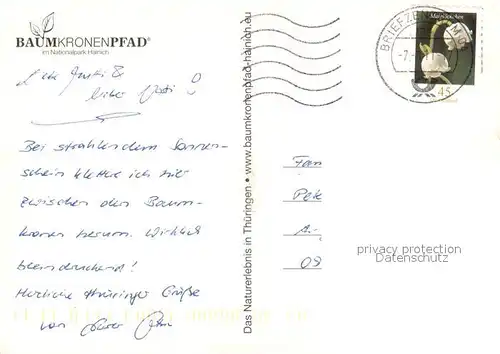 BAUMKRONENPFAD®
im Nationalpark Hainich
Liebe
lieber
Bei strahlendem Sonnen-
schein klettere ich hier
zwischen den Baum-
kronen herum. Wirklich
beeindruckend!
Herzliche Thüringer Grüße
von
Das Naturerlebnis in Thüringen • www.baumkronenpfad-hainich.eu
BRIEFZE
Maiglöckchen
45
Fam
Pete
09
privacy protection
Datenschutz